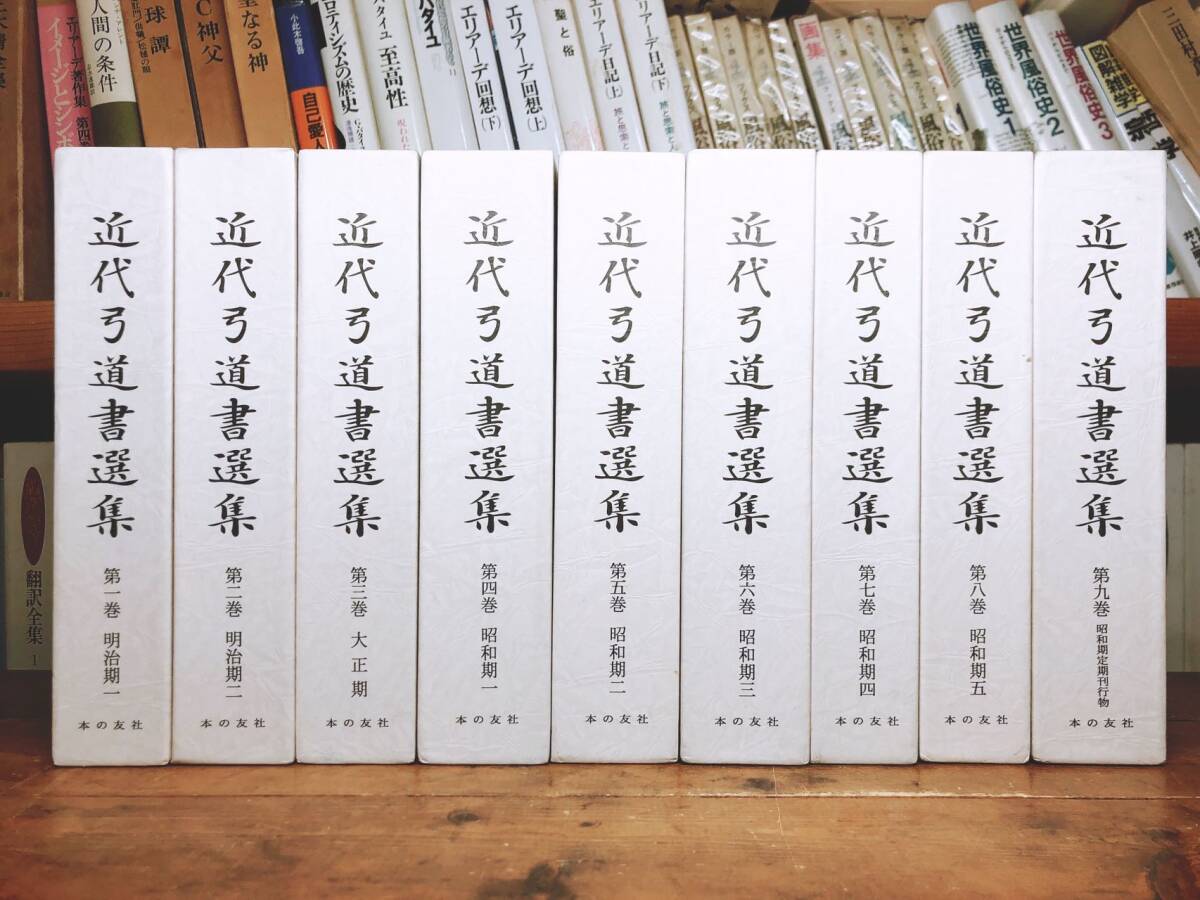 人間の条件
球譚
C神父
聖なる神
イメージとシンボ
エリアーデ著作集 第四
小此木啓吾
自己愛人
ロティシズムの歴史
バタイユ 至高性
呪われた
バタイユ
エリアーデ回想(下)
エリアーデ回想(上)
聖と俗
エリアーデ日記(上)
旅と思索と
エリアーデ日記(下)
旅と思索と
画集
世界風俗史 1
世界風俗史 2
世界風俗史 3
図解雑学
三田村
近代弓道書選集
第一巻 明治期一
本の友社
近代弓道書選集
第二巻 明治期二
本の友社
近代弓道書選集
第三巻 大正期
本の友社
近代弓道書選集
第四巻 昭和期一
本の友社
近代弓道書選集
第五巻 昭和期二
本の友社
近代弓道書選集
第六巻 昭和期三
本の友社
近代弓道書選集
第七巻 昭和期四
本の友社
近代弓道書選集
第八巻 昭和期五
本の友社
近代弓道書選集
第九巻 昭和期定期刊行物
本の友社
翻訳全集 1